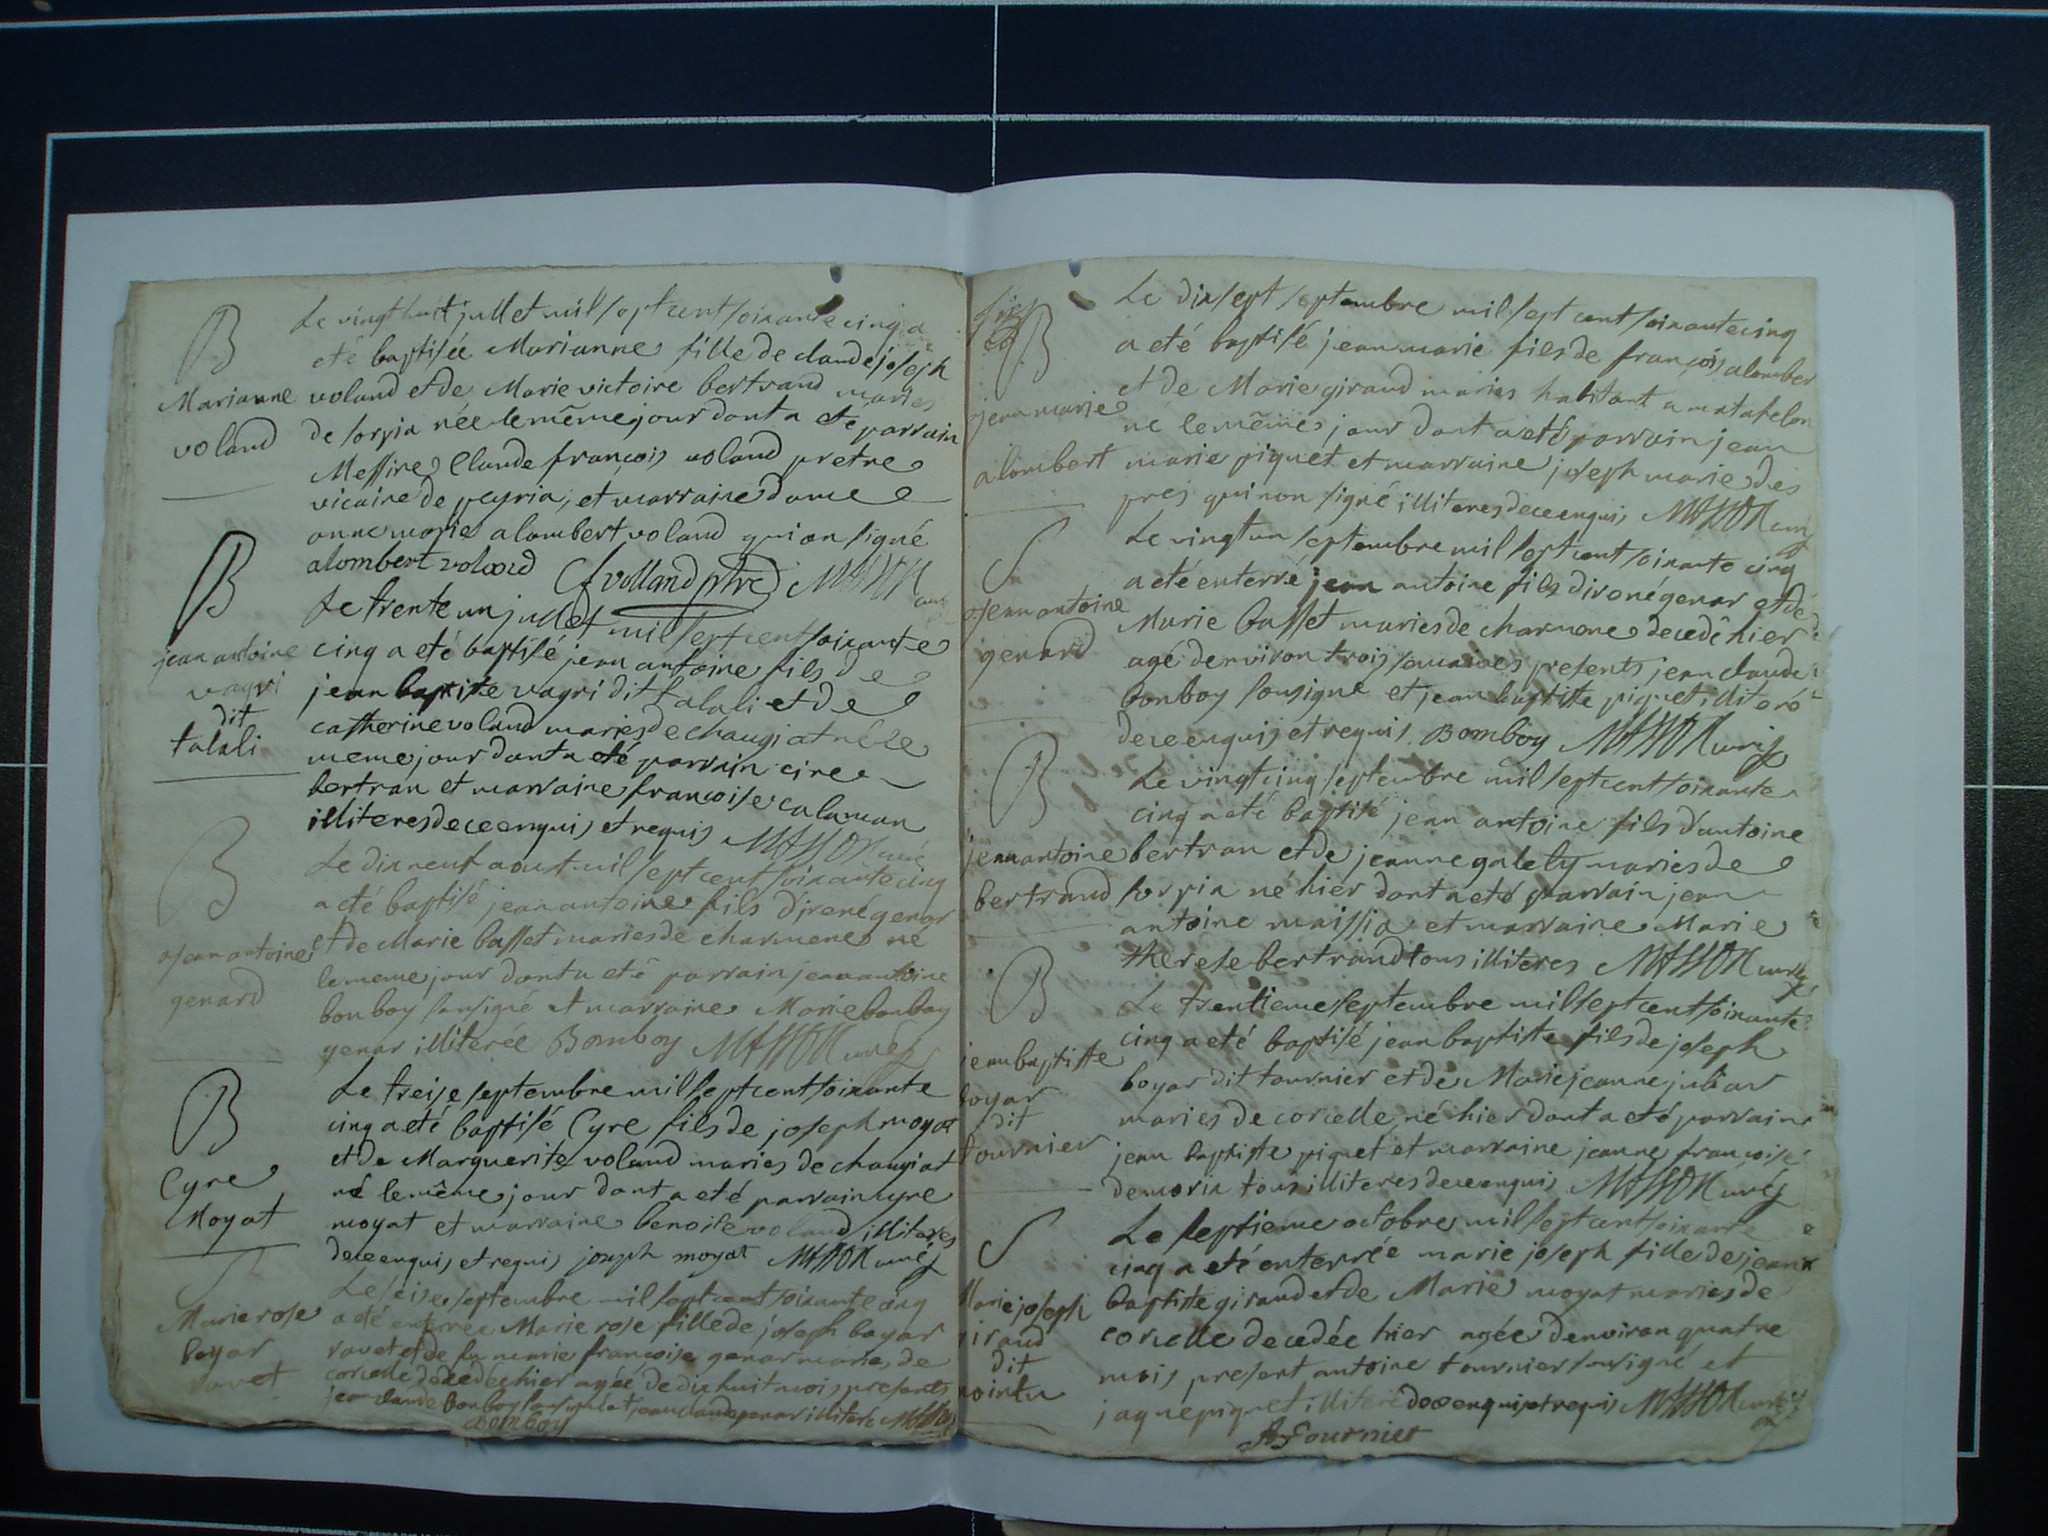 B
Marianne
voland
Le vingt huit jullet mil sept cent soixante cinq a
eté baptisée Marianne fille de claude joseph
voland et de Marie victoire bertrand maries
de sorpia née le même jour dont a eté parrain
Messire Claude françois voland pretre
vicaire de peyria, et marraine dame
anne marie alombert voland qui on signé
alombert voland Cf volland ptre MASSON curé
B
jean antoine
vagri
dit
talali
Le trente un jullet mil sept cent soixante
cinq a eté baptisé jean antoine fils de
jean baptiste vagri dit talali et de
catherine voland maries de chaugiat né le
meme jour dont a eté parrain cire
bertran et marraine françoise calaman
illiteres de ce enquis et requis MASSON curé
B
jean antoine
genard
Le dixneuf aoust mil sept cent soixante cinq
a eté baptisé jean antoine fils d'irené genar
et de Marie basset maries de charmene né
le meme jour dont a eté parrain jean antoine
bonboy sousigné et marraine Marie bonboy
genar illiterée Bomboy MASSON curé
B
Cyre
Moyat
Le treise septembre mil sept cent soixante
cinq a eté baptisé Cyre fils de joseph moyat
et de Marguerite voland maries de chaugiat
né le même jour dont a eté parrain cyre
moyat et marraine benoite voland illiteres
de ce enquis et requis joseph moyat MASSON curé
S
Marie rose
boyar
ravet
Le seise septembre mil sept cent soixante cinq
a eté enterrée Marie rose fille de joseph boyar
ravet et de fu marie françoise genar maries de
corcelle décedée hier agée de dix huit mois presents
jean claude bonboy sousigné et jean claude genar illitere MASSON
Bomboy
B
jean marie
alombert
Le dixsept septembre mil sept cent soixante cinq
a eté baptisé jean marie fils de françois alomber
et de Marie giraud maries habitant a matafelon
né le même jour dont a eté parrain jean
marie piquet et marraine joseph marie des
pres qui non signé illiteres de ce enquis MASSON curé
S
jean antoine
genard
Le vingt un septembre mil sept cent soixante cinq
a eté enterré jean antoine fils d'irené genar et de
Marie basset maries de charmene decedé hier
agé d'environ trois semaines presents jean claude
bonboy sousigné et jean baptiste piquet illiteré
de ce enquis et requis Bomboy MASSON curé
B
jean antoine
bertrand
Le vingt cinq septembre mil sept cent soixante
cinq a eté baptisé jean antoine fils d'antoine
bertran et de jeanne galety maries de
sorpia né hier dont a eté parrain jean
antoine maissia et marraine Marie
therese bertrand tous illiteres MASSON curé
B
jean baptiste
boyar
dit
tournier
Le trentieme septembre mil sept cent soixante
cinq a eté baptisé jean baptiste fils de joseph
boyar dit tournier et de Marie jeanne juliar
maries de corcelle né hier dont a eté parrain
jean baptiste piquet et marraine jeanne françoise
demoria tous illiteres de ce enquis MASSON curé
S
Marie joseph
giraud
dit
pointu
Le septieme octobre mil sept cent soixante
cinq a eté enterrée marie joseph fille de jean
baptiste giraud et de Marie moyat maries de
corcelle decedée hier agée d'environ quatre
mois present antoine tournier sousigné et
jaque piquet illiteré de ce enquis et requis MASSON curé
A Fournier